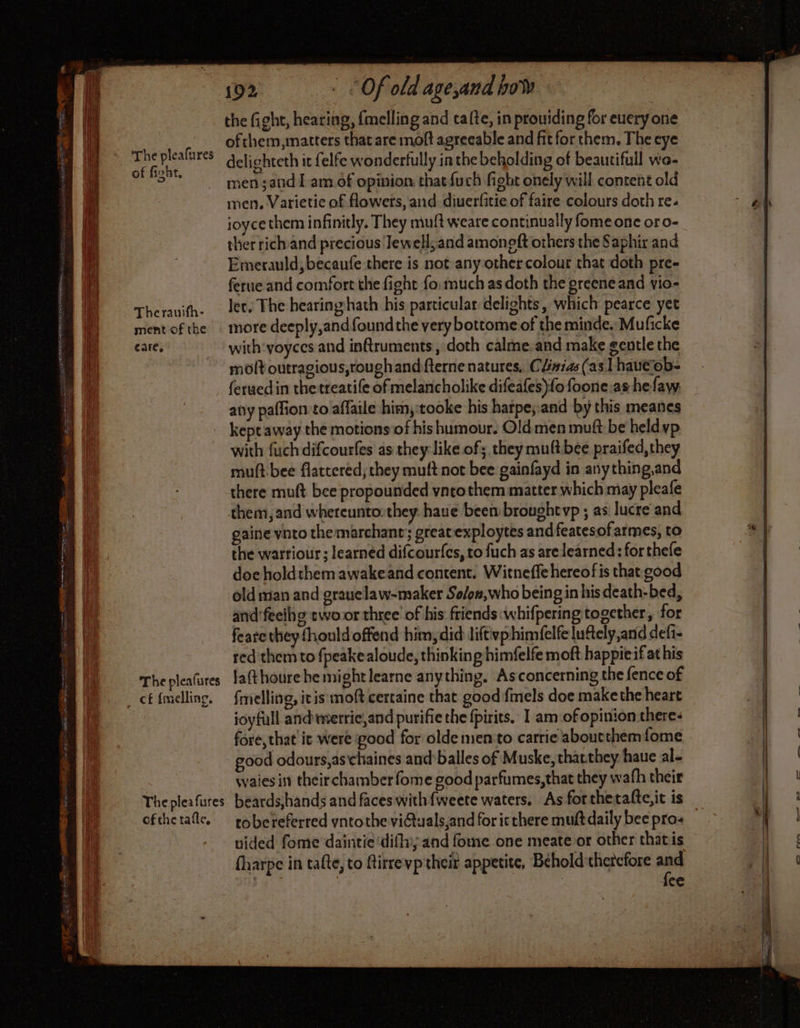 192 Of old age,and how
the ſight, hearing, ſmelling and taſte, in prouiding for euery one
of them,matters that are moſt agreeable and fit for them. The eye
The pleaſures
of ſight.
delighteth it ſelfe wonderfully in the beholding of beautifull wo-
men;and I am of opinion that ſuch ſight onely will content old
men. Varietie of flowers,and diuerſitie of faire colours doth re-
ioyce them infinitly. They muſt weare continually ſome one or o-
ther rich and precious Iewell,and amongſt others the Saphir and
Emerauld,becauſe there is not any other colour that doth pre-
ſerue and comfort the ſight ſo much as doth the greene and vio-
The rauiſh-
ment of the
eare.
let. The hearing hath his particular delights, which pearce yet
more deeply,and ſound the very bottome of the minde. Muſicke
with voyces and inſtruments, doth calme and make gentle the
moſt outragious,rough and ſterne natures. Clinias (as I haue ob-
ſerued in the treatiſe of melancholike diſeaſes)ſo ſoone as he ſaw
any paſſion to aſſaile him, tooke his harpe, and by this meanes
kept away the motions of his humour. Old men muſt be held vp
with ſuch diſcourſes as they like of; they muſt bee praiſed,they
muſt bee flattered, they muſt not bee gainſayd in any thing,and
there muſt bee propounded vnto them matter which may pleaſe
them, and whereunto they haue been brought vp; as lucre and
gaine vnto the marchant; great exploytes and feates of armes, to
the warriour; learned diſcourſes, to ſuch as are learned: for theſe
doe hold them awake and content. Witneſſe hereof is that good
old man and graue law-maker Solon,who being in his death-bed,
and ſeeing two or three of his friends whiſpering together, for
feare they ſhould offend him, did lift vp himſelfe luſtely,and deſi-
red them to ſpeake aloude, thinking himſelfe moſt happie if at his
The pleaſures
of ſmelling.
laſt houre he might learne any thing. As concerning the ſence of
ſmelling, it is moſt certaine that good ſmels doe make the heart
ioyfull and merrie,and purifie the ſpirits. I am of opinion there-
fore,that it were good for olde men to carrie about them ſome
good odours,as chaines and balles of Muske, that they haue al-
waies in their chamber ſome good parfumes,that they waſh their
The pleaſures
of the taſte.
beards,hands and faces with ſweete waters. As for the taſte,it is
to be referred vnto the victuals,and for it there muſt daily bee pro-
uided ſome daintie diſh, and ſome one meate or other that is
ſharpe in taſte, to ſtirre vp their appetite. Behold therefore and
ſee